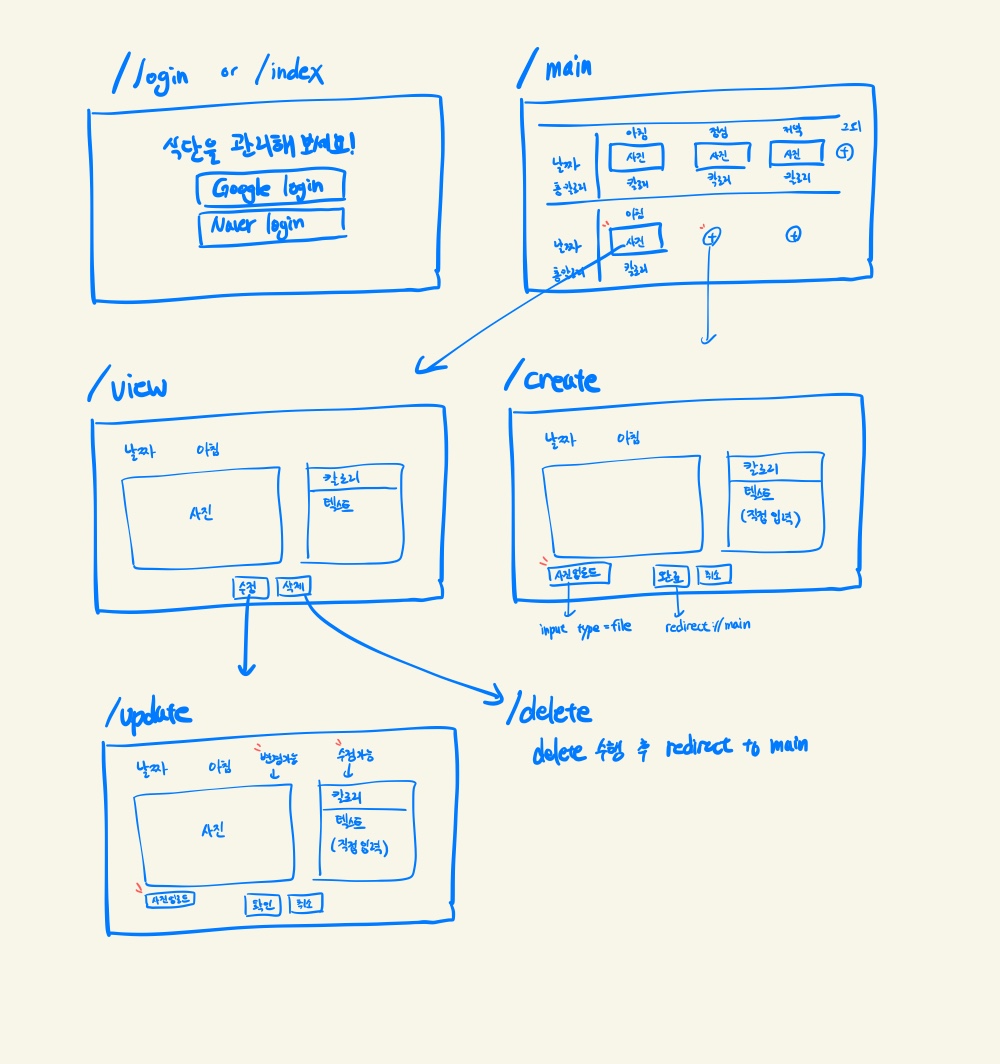 /login or /index
식단을 관리해 보세요!
Google login
Naver login
/main
아침 점심 저녁
날짜 사진 사진 사진
총칼로리 칼로리 칼로리 칼로리
아침
날짜 사진
총칼로리 칼로리
/view
날짜 아침
사진
칼로리
텍스트
수정 삭제
/create
날짜 아침
칼로리
텍스트
(직접 입력)
사진업로드 완료 취소
input type=file redirect://main
/update
날짜 아침 변경가능 수정가능
사진
칼로리
텍스트
(직접 입력)
사진업로드 확인 취소
/delete
delete 수행 후 redirect to main